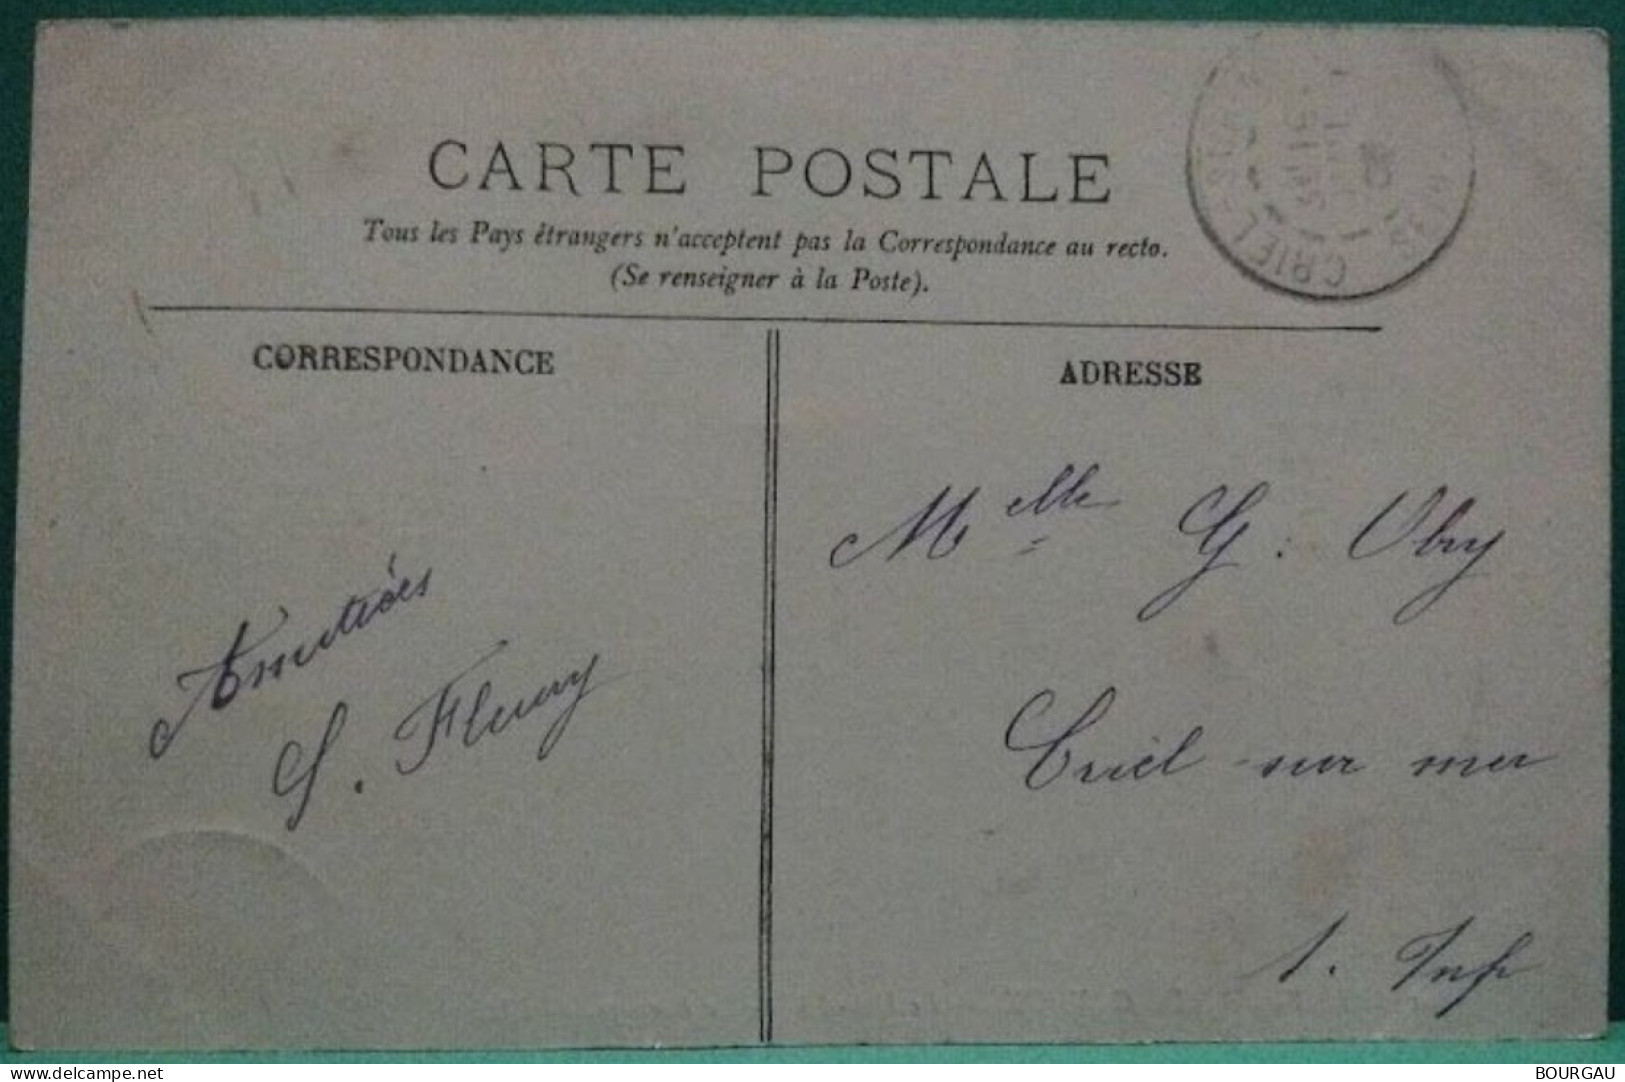 CARTE POSTALE
Tous les Pays étrangers n'acceptent pas la Correspondance au recto.
(Se renseigner à la Poste).
CORRESPONDANCE
ADRESSE
Melle G. Obry
Criel sur mer
S. Inf
Amitiés
S. Fleury
CRIEL-SUR-
www.delcampe.net
BOURGAU